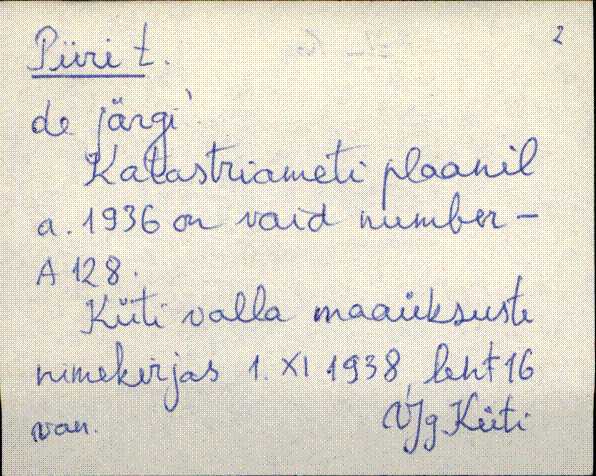 Piiri t.
2
de järgi
Katastriameti plaanil
a. 1936 on vaid number -
A 128.
Küti valla maaüksuste
nimekirjas 1. XI 1938, leht 16
van.
VJg Küti